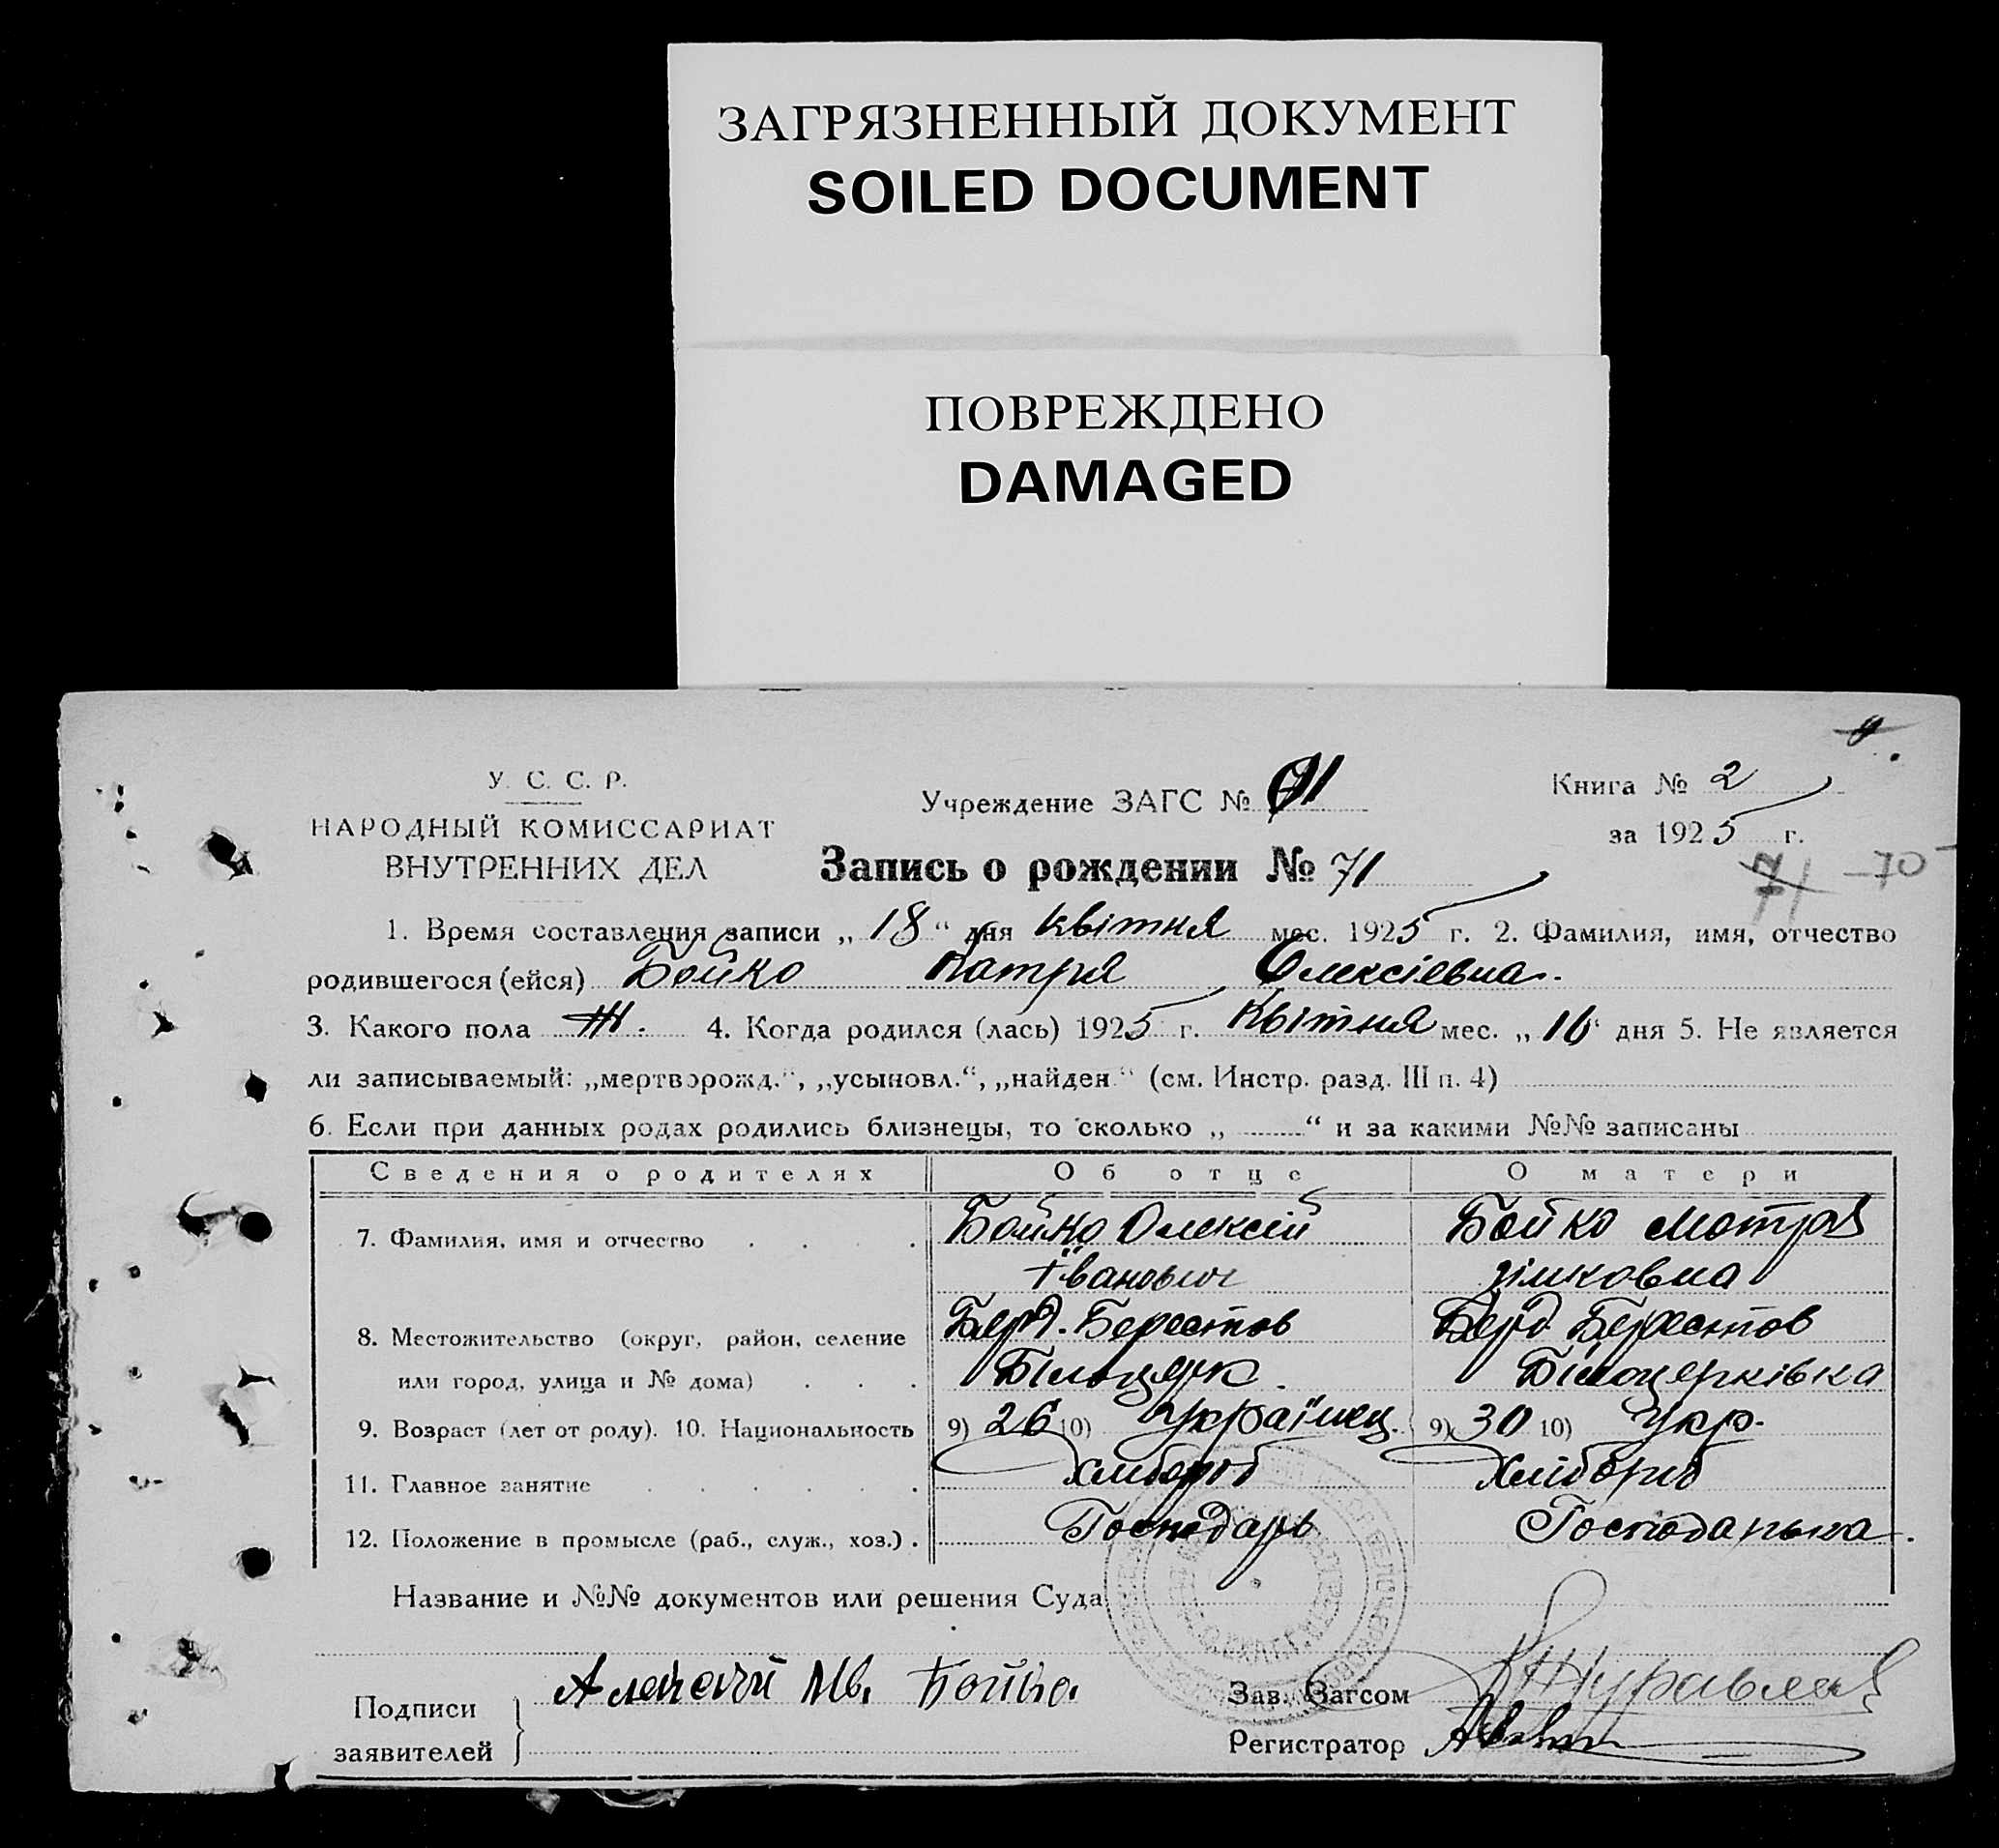 ЗАГРЯЗНЕННЫЙ ДОКУМЕНТ
SOILED DOCUMENT
ПОВРЕЖДЕНО
DAMAGED
У. С. С. Р.
НАРОДНЫЙ КОМИССАРИАТ
ВНУТРЕННИХ ДЕЛ
Учреждение ЗАГС №
Книга № 2
за 1925 г.
Запись о рождении № 71
71 -70
1. Время составления записи „18“ дня квітня мес. 1925 г. 2. Фамилия, имя, отчество
родившегося (ейся) Бойко Катря Олексіевна.
3. Какого пола Ж. 4. Когда родился (лась) 1925 г. Квітня мес. „16“ дня 5. Не является
ли записываемый: „мертворожд.“, „усыновл.“, „найден“ (см. Инстр. разд. III п. 4)
6. Если при данных родах родились близнецы, то сколько „ “ и за какими №№ записаны
Сведения о родителях Об отце О матери
7. Фамилия, имя и отчество Бойко Олексій Бойко Мотря
Іванович
8. Местожительство (округ, район, селение Берд. Берестов Берд Берестов
или город, улица и № дома) Білоцерк. Білоцерківка
9. Возраст (лет от роду). 10. Национальность 9) 26 10) Українец 9) 30 10) Укр.
11. Главное занятие хлібороб Хлібороб
12. Положение в промысле (раб., служ., хоз.) Господарь Господарька.
Название и №№ документов или решения Суда
Подписи заявителей Алексей Ив. Бойко.
Зав. Загсом
Регистратор